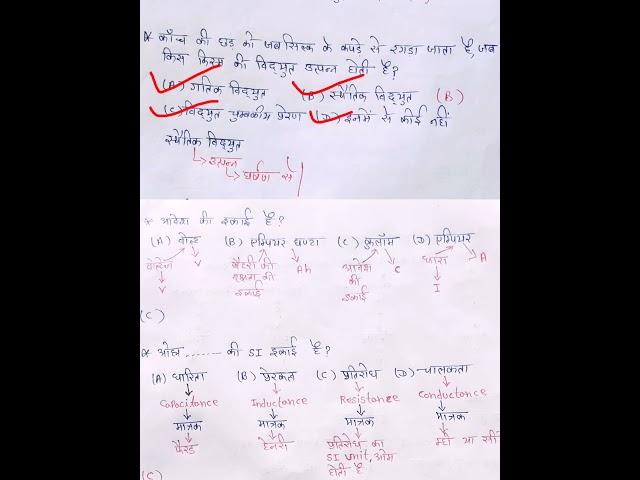 * काँच की छड़ को जब सिल्क के कपडे से रगडा जाता है, जब
किस किस्म की विद्युत उत्पन्न होती है?
(A) गतिक विद्युत (B) स्थैतिक विद्युत (B)
(C) विद्युत चुम्बकीय प्रेरण (D) इनमें से कोई नहीं
स्थैतिक विद्युत
उत्पन्न
घर्षण से
* आवेश की इकाई है?
(A) वोल्ट (B) एम्पियर घण्टा (C) कुलॉम (D) एम्पियर
वोल्टेज V बैटरी की क्षमता की इकाई Ah आवेश की इकाई C धारा A
V I
(C)
* ओह्म ........ की SI इकाई है?
(A) धारिता (B) प्रेरकत्व (C) प्रतिरोध (D) चालकता
Capacitance Inductance Resistance Conductance
मात्रक मात्रक मात्रक मात्रक
फैरड हेनरी प्रतिरोध का म्हो या
SI unit, ओम
होती है
(C)